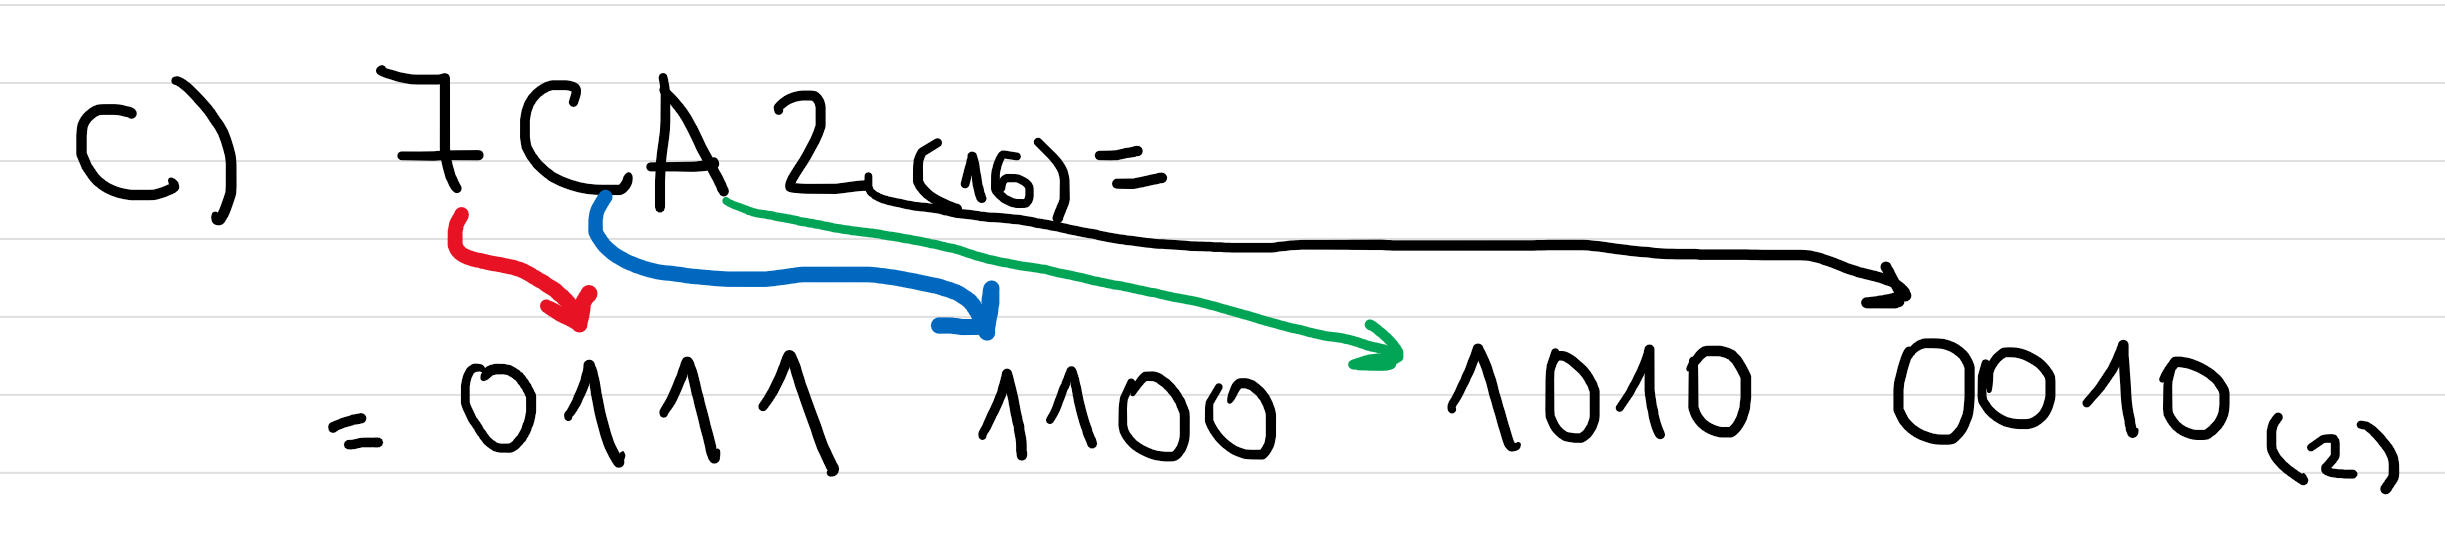 C) 7CA2(16)=
= 0111 1100 1010 0010(2)